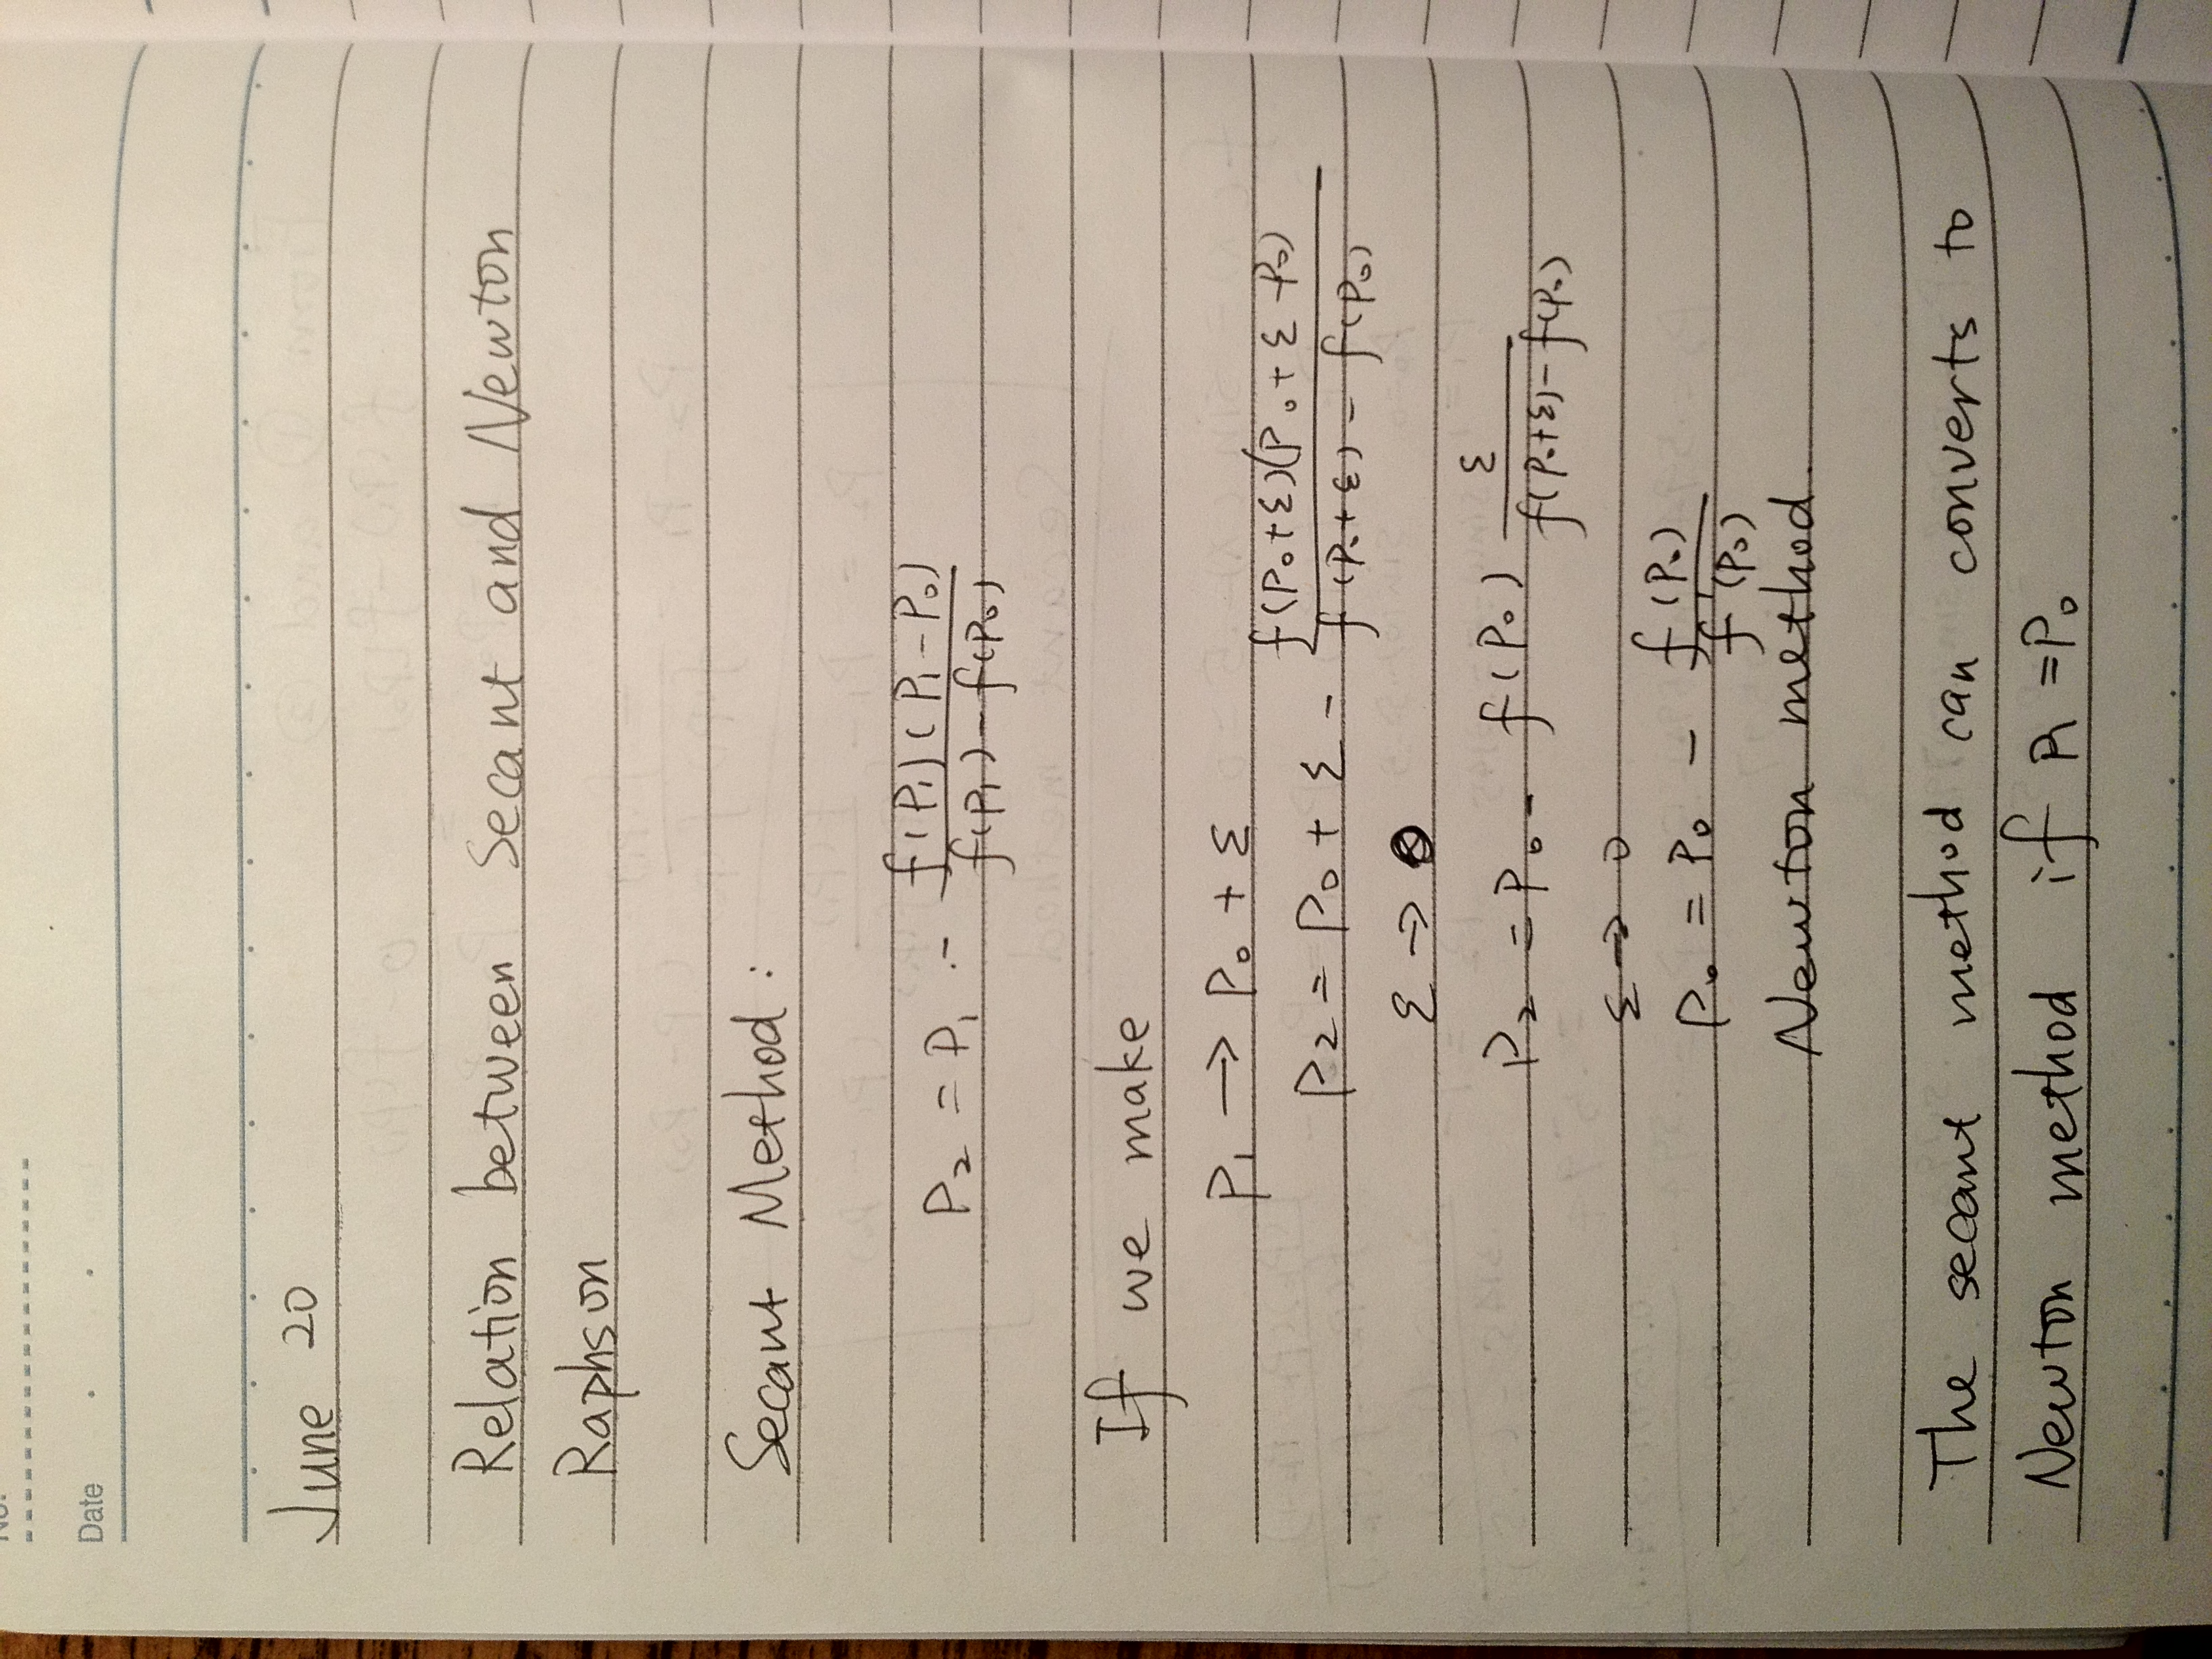 No.
Date
June 20
Relation between Secant and Newton
Raphson
Secant Method:
P₂ = P₁ - f(P₁)(P₁-P₀) / f(P₁)-f(P₀)
If we make
P₁ → P₀ + ε
P₂ = P₀ + ε - f(P₀+ε)(P₀+ε-P₀) / f(P₀+ε) - f(P₀)
ε → 0
P₂ = P₀ - f(P₀) ε / f(P₀+ε) - f(P₀)
ε → 0
P₀ = P₀ - f(P₀) / f'(P₀)
Newton method
The secant method can converts to
Newton method if P₁ = P₀